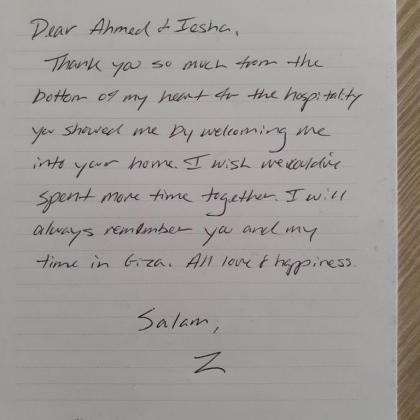 Dear Ahmed & Iesha,
Thank you so much from the
bottom of my heart for the hospitality
you showed me by welcoming me
into your home. I wish we could've
spent more time together. I will
always remember you and my
time in Giza. All love & happiness.
Salam,
Z